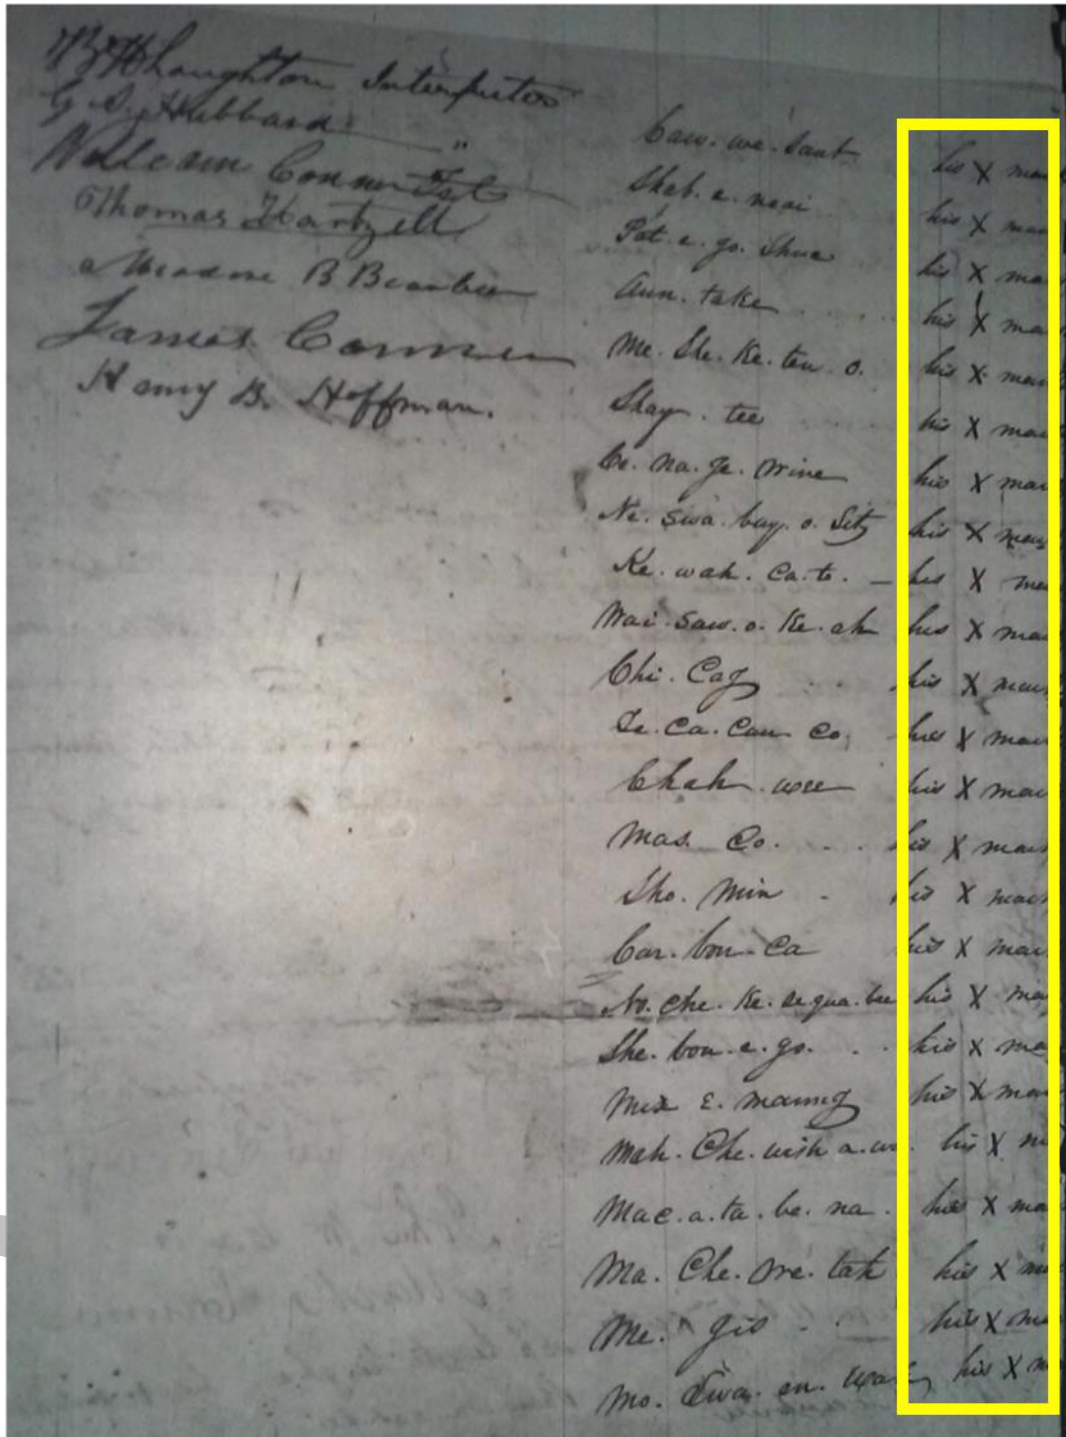 Houghton Interpreter
G. S. Hubbard "
William Conner Int
Thomas Hartzell
Meadore B Beaubien
James Conner
Henry B. Hoffman.
Caw. we. saut his X ma
Shab. e. nai his X ma
Pat. e. go. Shuc his X ma
Aun. take his X ma
Me. She. Ke. ten. o. his X mar
Shay. tee his X mar
Ce. na. ge. wine his X mar
Ne. swa. bay. o. Sity his X mar
Ke. wah. Ca. to. — his X ma
Wai. saw. o. Ke. ah his X mar
Chi. Cag his X mar
Te. Ca. Cau Co. his X mar
Chah. wee his X mar
Mas. Co. his X mar
Sho. min his X mar
Car. bon. Ca his X mar
No. che. Ke. se qua. bee his X ma
She. bon. e. go. his X ma
Mix E. maung his X mar
Mah. Che. wish a. wa. his X m
Mac. a. ta. be. na. his X ma
Ma. Che. we. tah his X m
Me. gis his X ma
Mo. Swa. en. wah, his X m